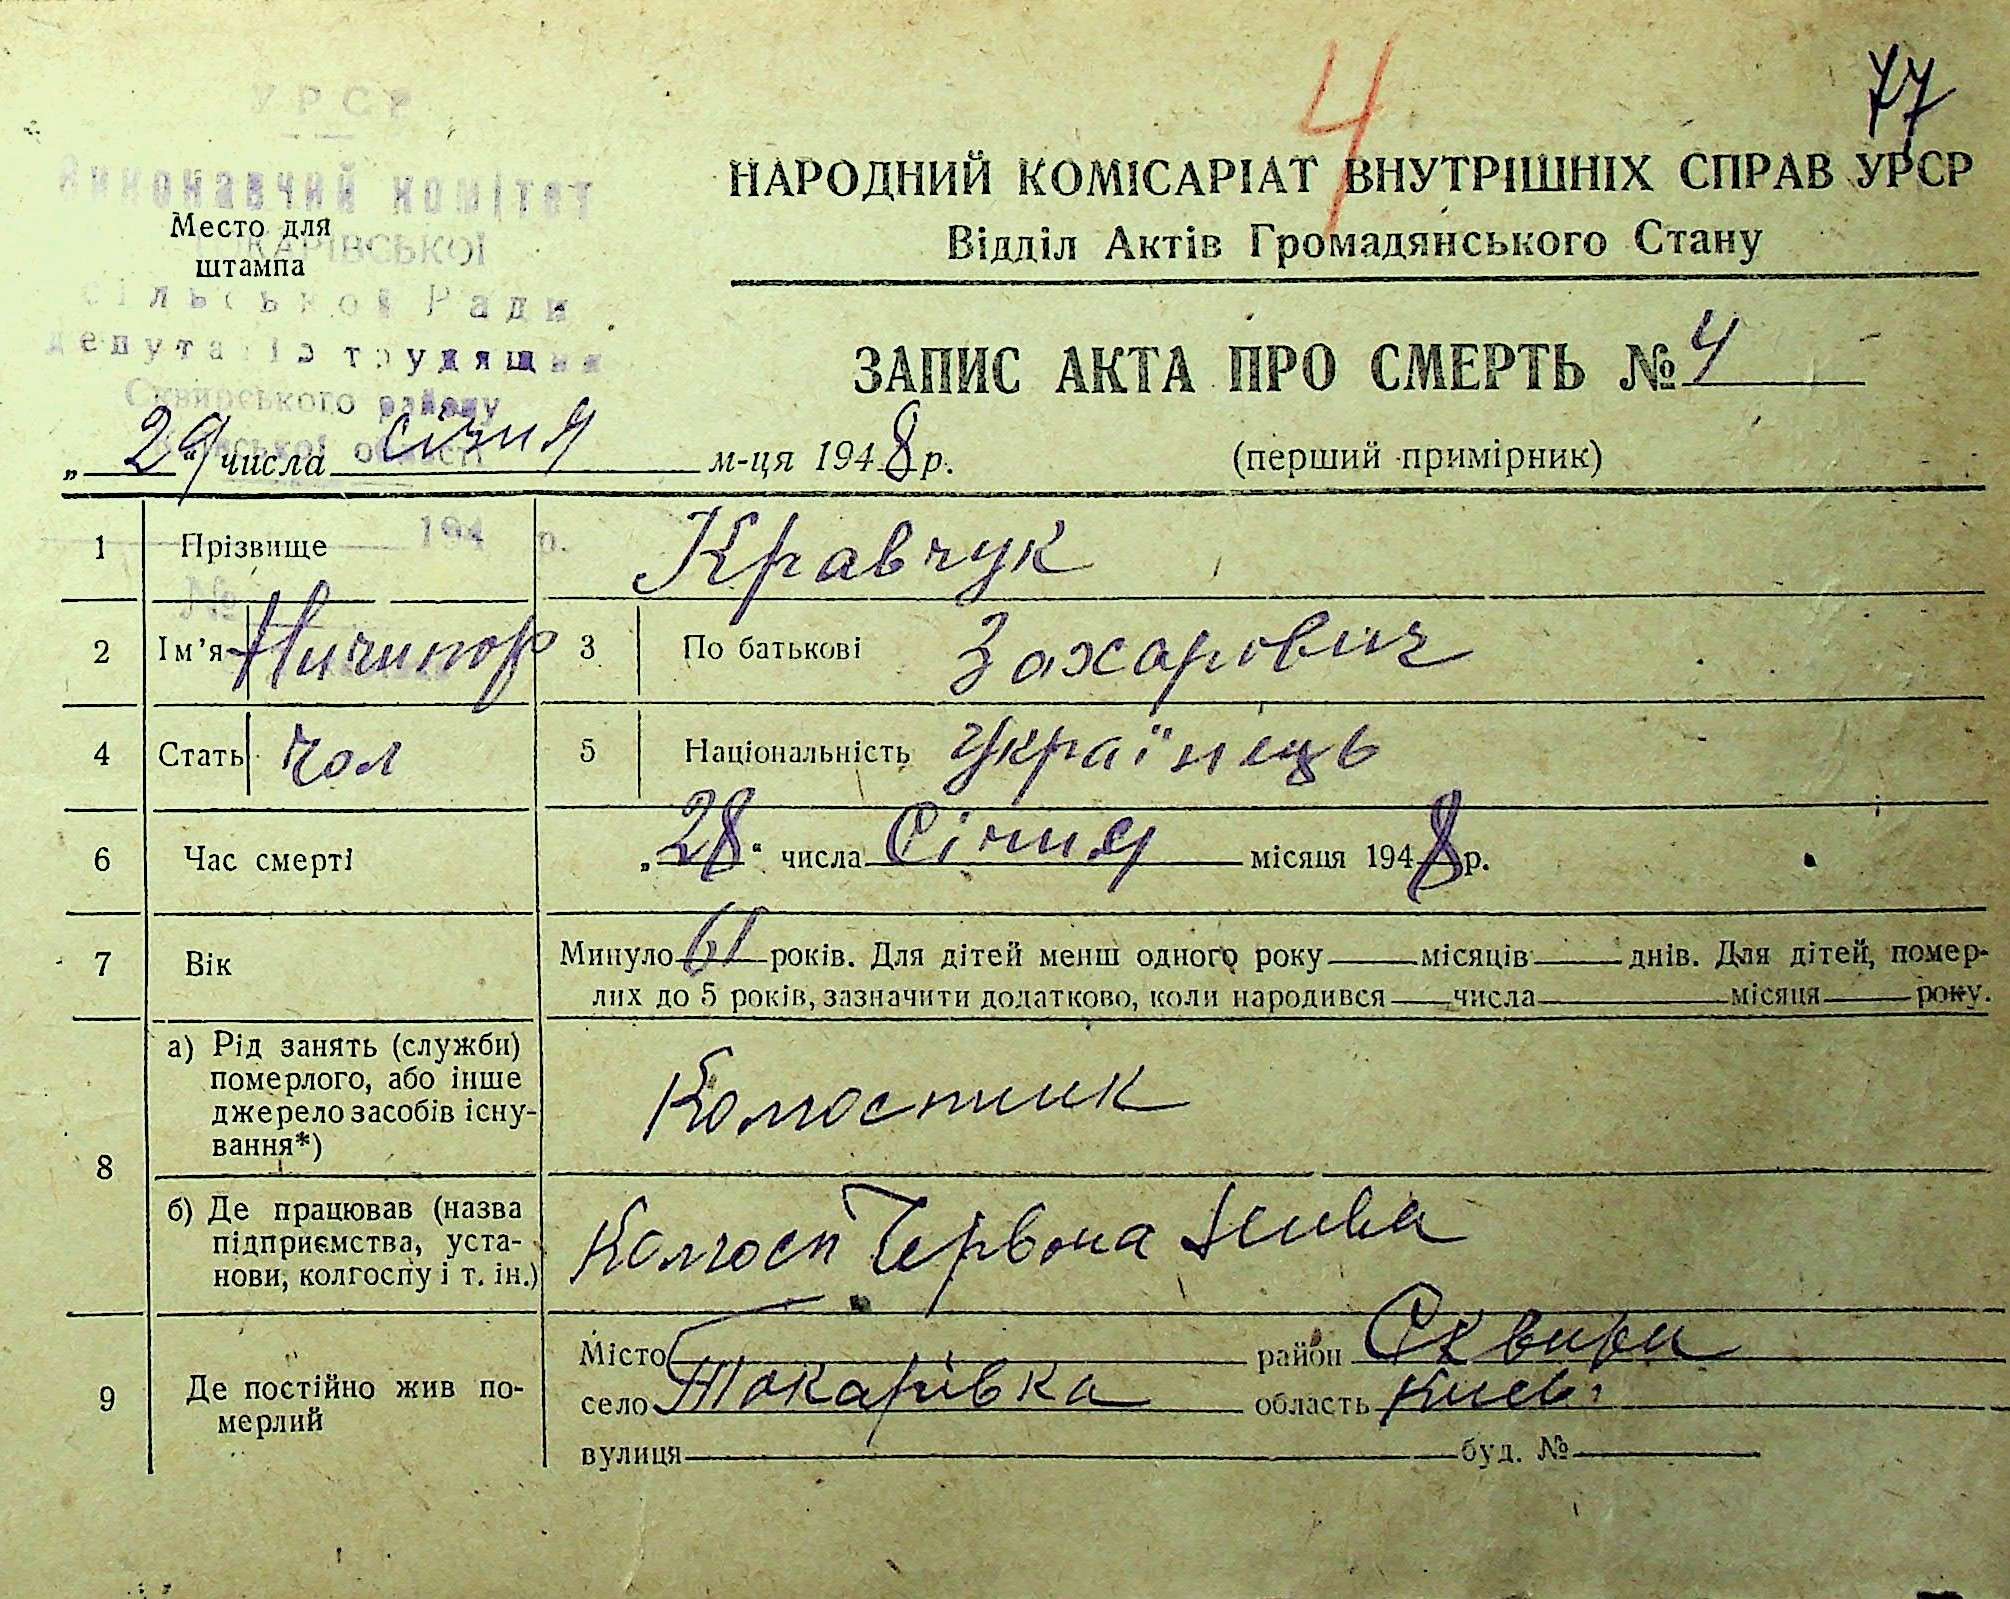 4
77
УРСР
Виконавчий комітет
Место для
штампа
КАРІВСЬКОЇ
сільської Ради
депутатів трудящих
Сквирського району
області
НАРОДНИЙ КОМІСАРІАТ ВНУТРІШНІХ СПРАВ УРСР
Відділ Актів Громадянського Стану
ЗАПИС АКТА ПРО СМЕРТЬ № 4
„29“ числа січня м-ця 1948 р.
(перший примірник)
194 р.
№
1 Прізвище Кравчук
2 Ім’я Ничипор 3 По батькові Захарович
4 Стать чол 5 Національність Українець
6 Час смерті „28“ числа Січня місяця 1948 р.
7 Вік Минуло 61 років. Для дітей менш одного року місяців днів. Для дітей, помер-
лих до 5 років, зазначити додатково, коли народився числа місяця року.
8 а) Рід занять (служби)
померлого, або інше
джерело засобів існу-
вання*)
Колгоспник
б) Де працював (назва
підприємства, уста-
нови, колгоспу і т. ін.)
Колгосп Червона Нива
9 Де постійно жив по-
мерлий
Місто район Сквири
село Токарівка область Київ.
вулиця буд. №